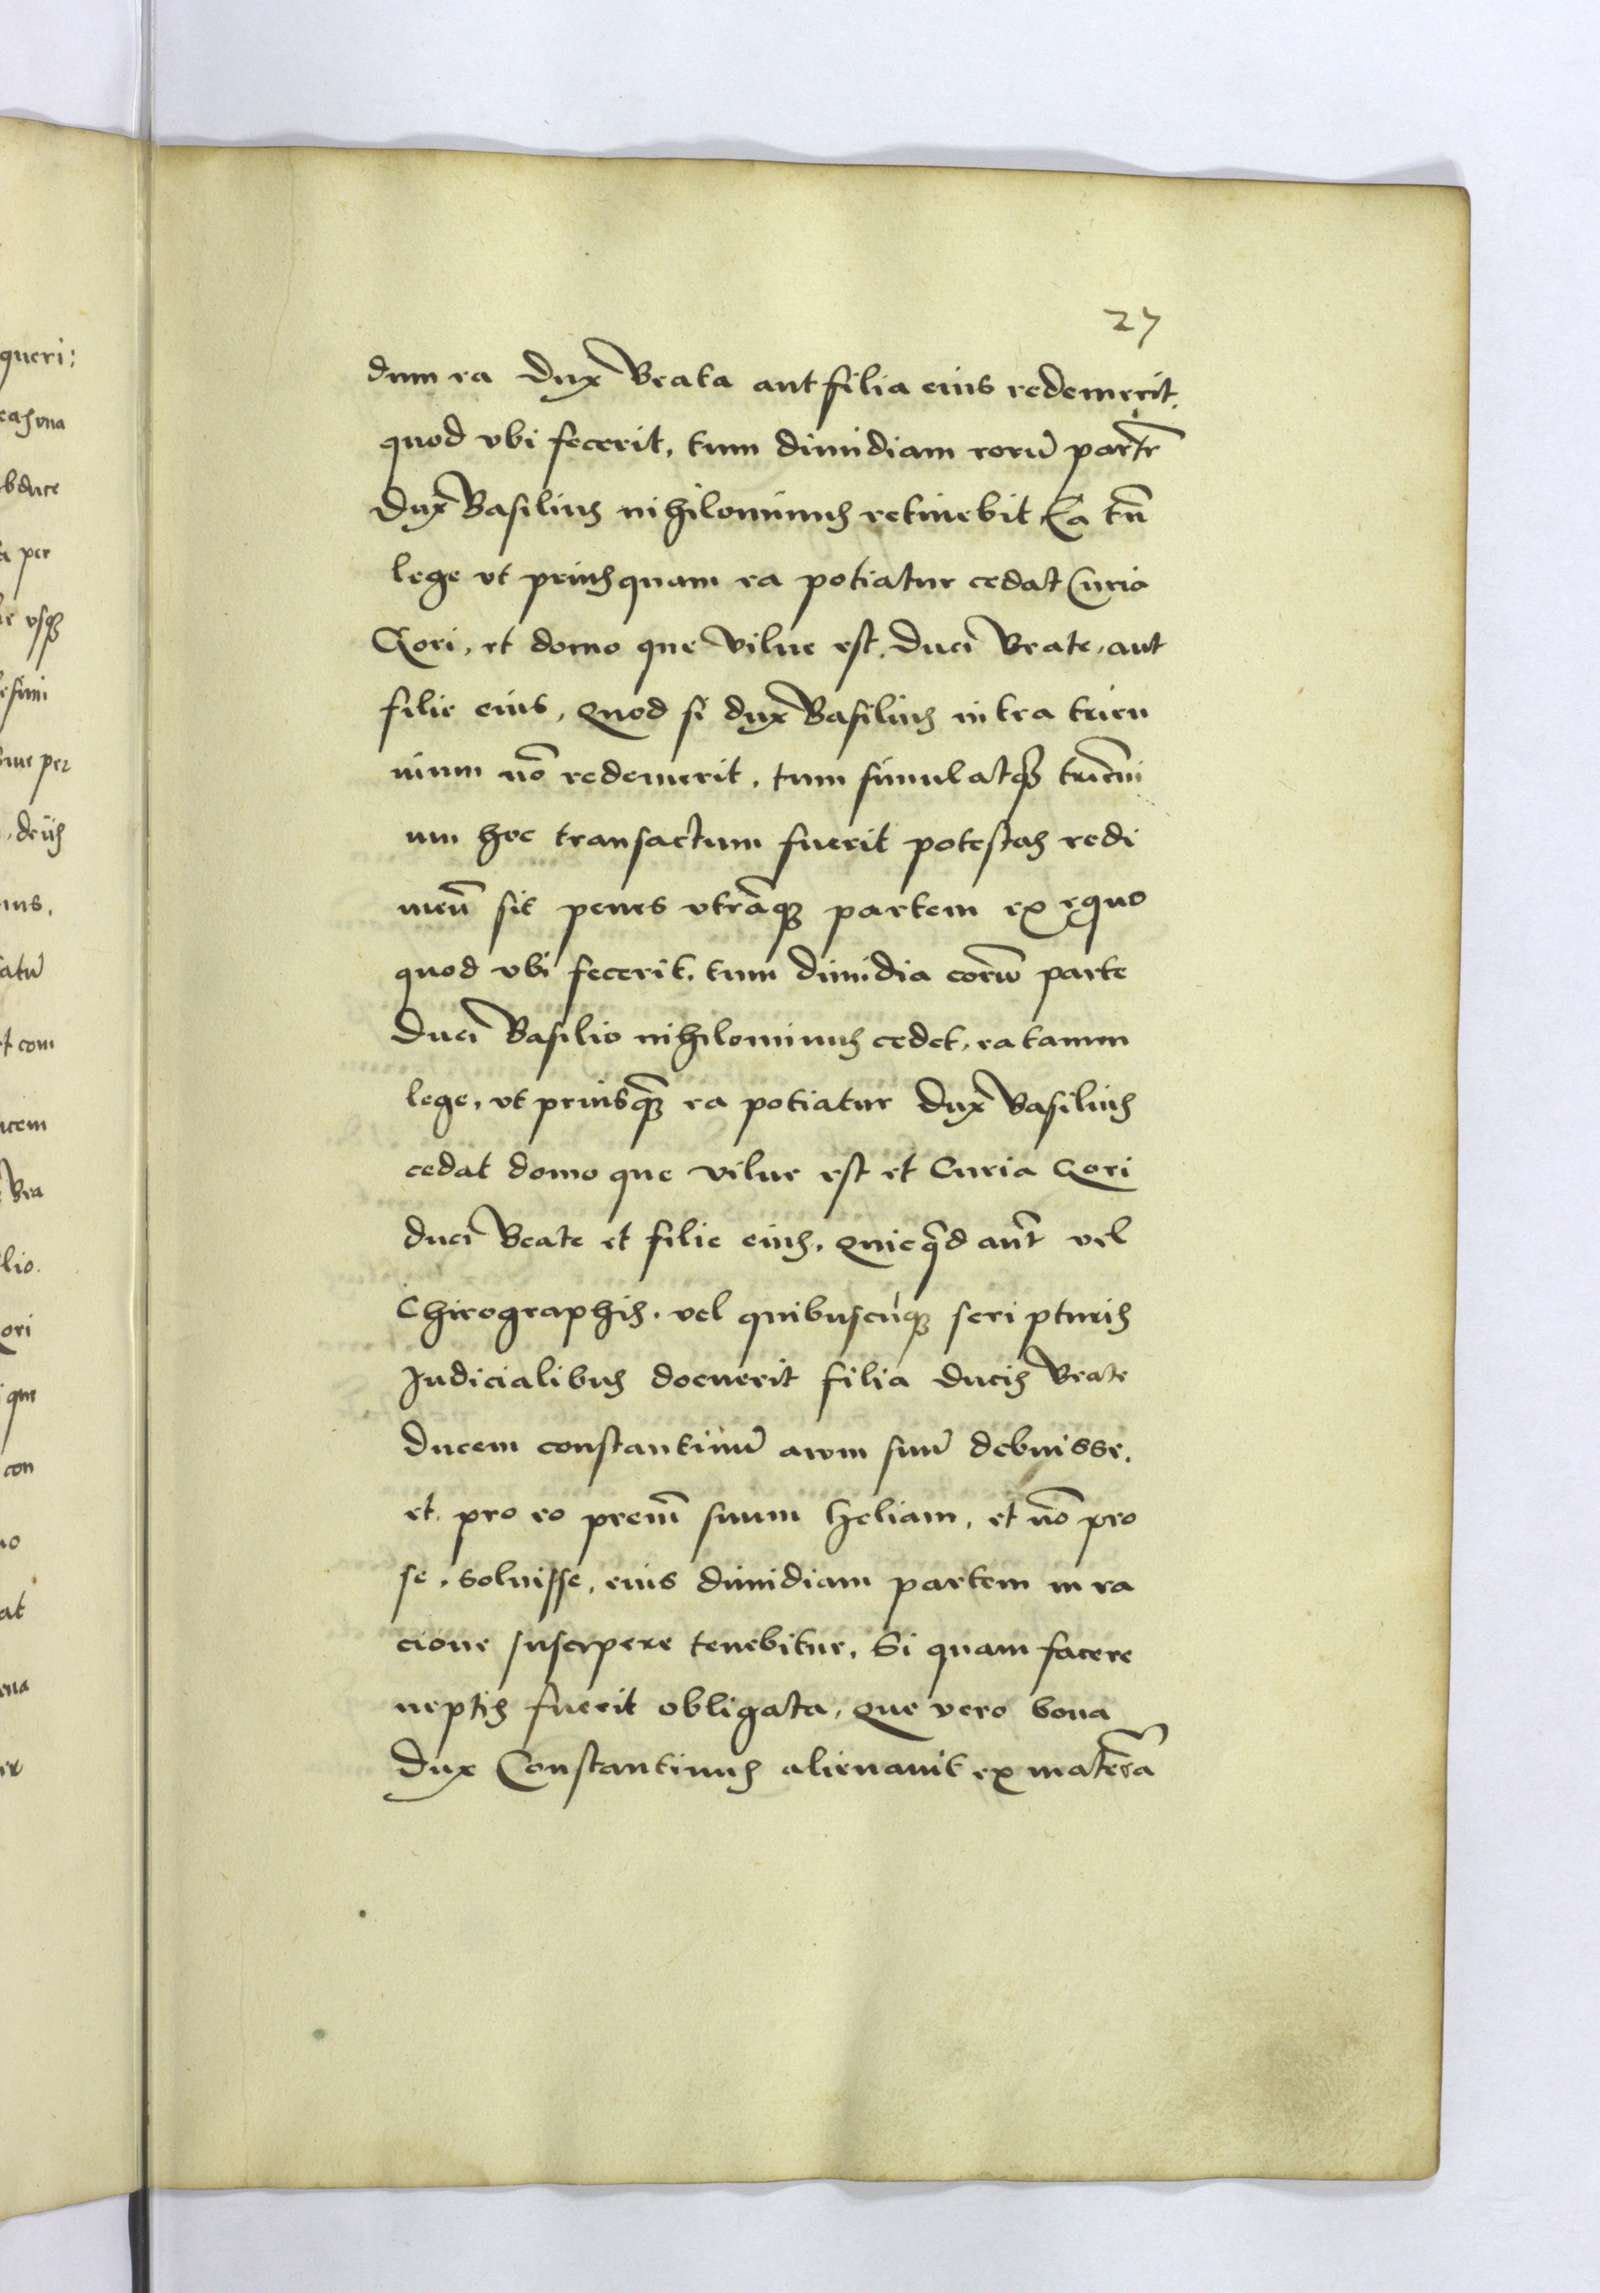 27
dum ea Dux Beata aut filia eius redemerit.
quod vbi fecerit, tum dimidiam eorū partē
Dux Basilius nihilominus retinebit Ea tn̄
lege vt priusquam ea potiatur cedat Curia
Gori, et domo que Vilne est, Duci Beate, aut
filie eius, Quod si dux Basilius intra trien
nium nō redemerit, tum simulatqȝ trieñni
um hoc transactum fuerit potestas redi
mēn̄ sit penes vtrāqȝ partem ex equo
quod vbi fecerit, tum dimidia eorū parte
Duci Basilio nihilominus cedet, ea tamen
lege, vt priusqȝ ea potiatur Dux Basilius
cedat domo que Vilne est et Curia Gori
duci Beate et filie eius, Quicqd aūt vel
Chirographis, vel quibuscūqȝ scripturis
Iudicialibus docuerit filia Ducis Beate
Ducem constantinū auum suū debuisse,
et pro eo prem̄ suum heliam, et nō pro
se, soluisse, eius dimidiam partem in ra
cione suscipere tenebitur, Si quam facere
neptis fuerit obligata, Que vero bona
Dux Constantinus alienauit ex matērā
queri:
vsqȝ